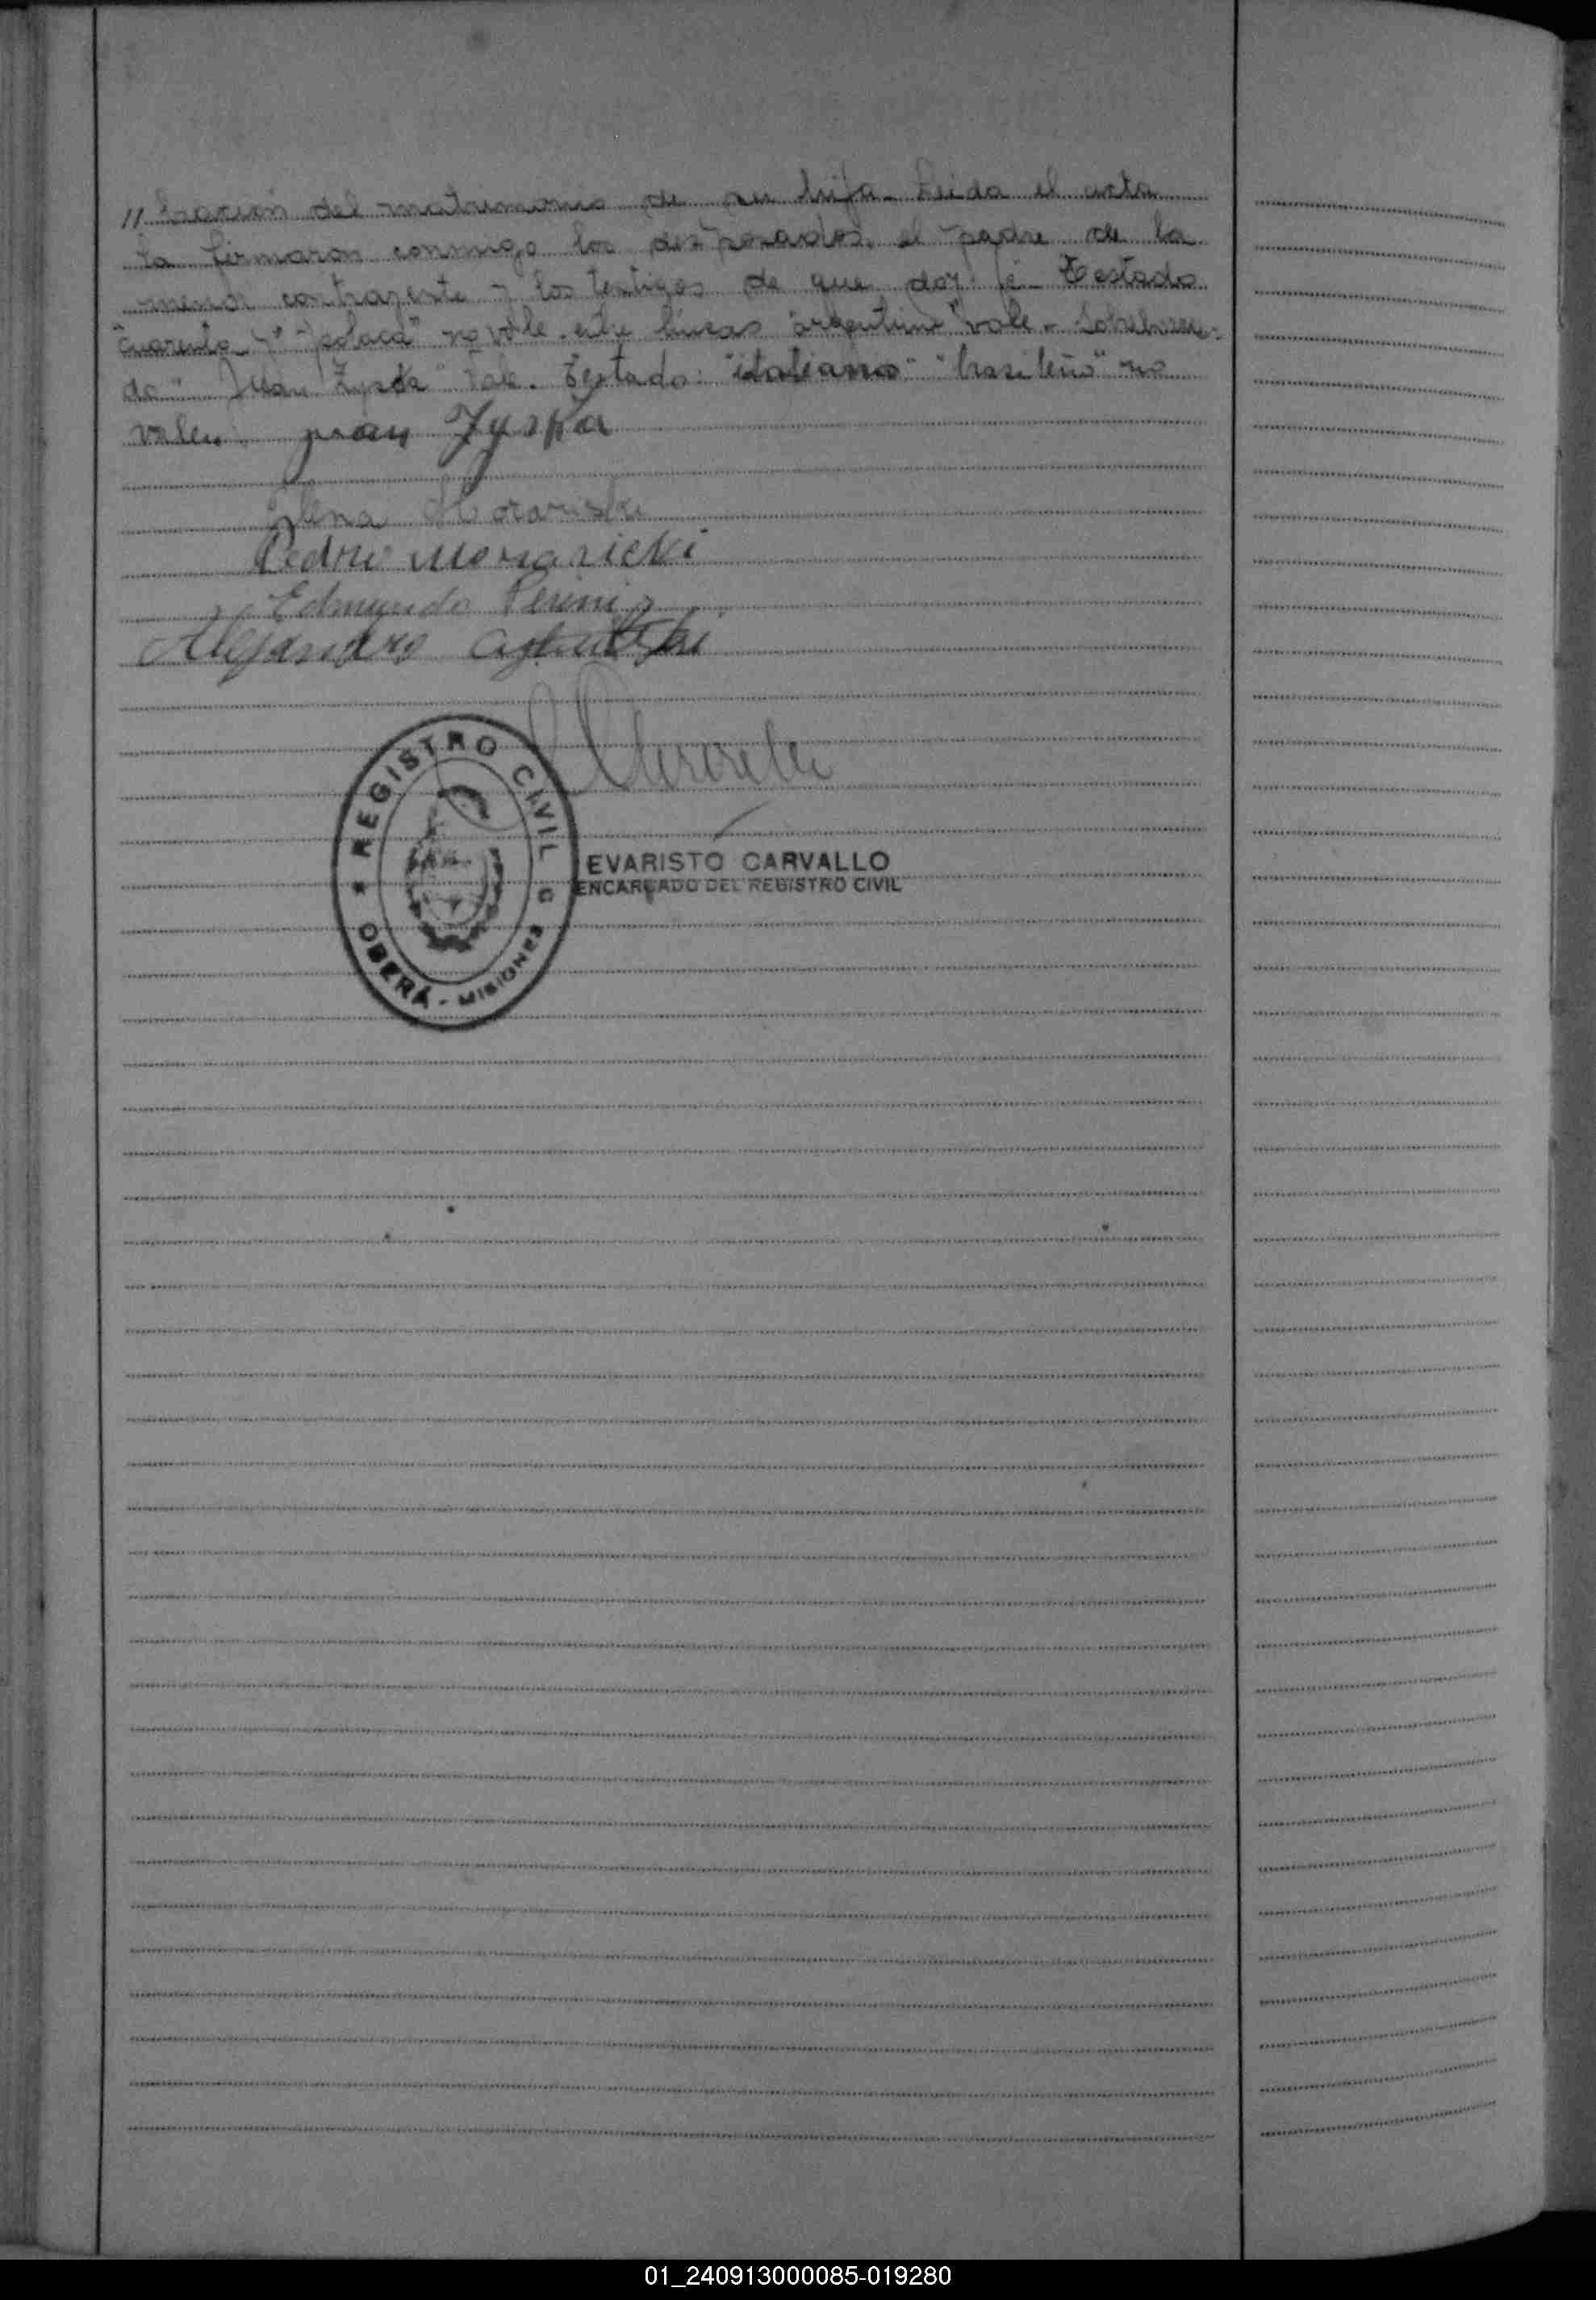 // bración del matrimonio de su hija. Leida el acta
la firmaron conmigo los desposados, el padre de la
menor contrayente y los testigos de que doy fé. Testado
"cuarenta y" "polaca" no vale. entre líneas "argentino" vale. Sobrerraspa-
do "Juan Zyska" vale. Testado: "italiano" "brasileño" no
valen. Juan Zyska
Elena
Pedro
Edmundo
Alejandro
REGISTRO CIVIL
OBERÁ - MISIONES
EVARISTO CARVALLO
ENCARGADO DEL REGISTRO CIVIL
01_240913000085-019280